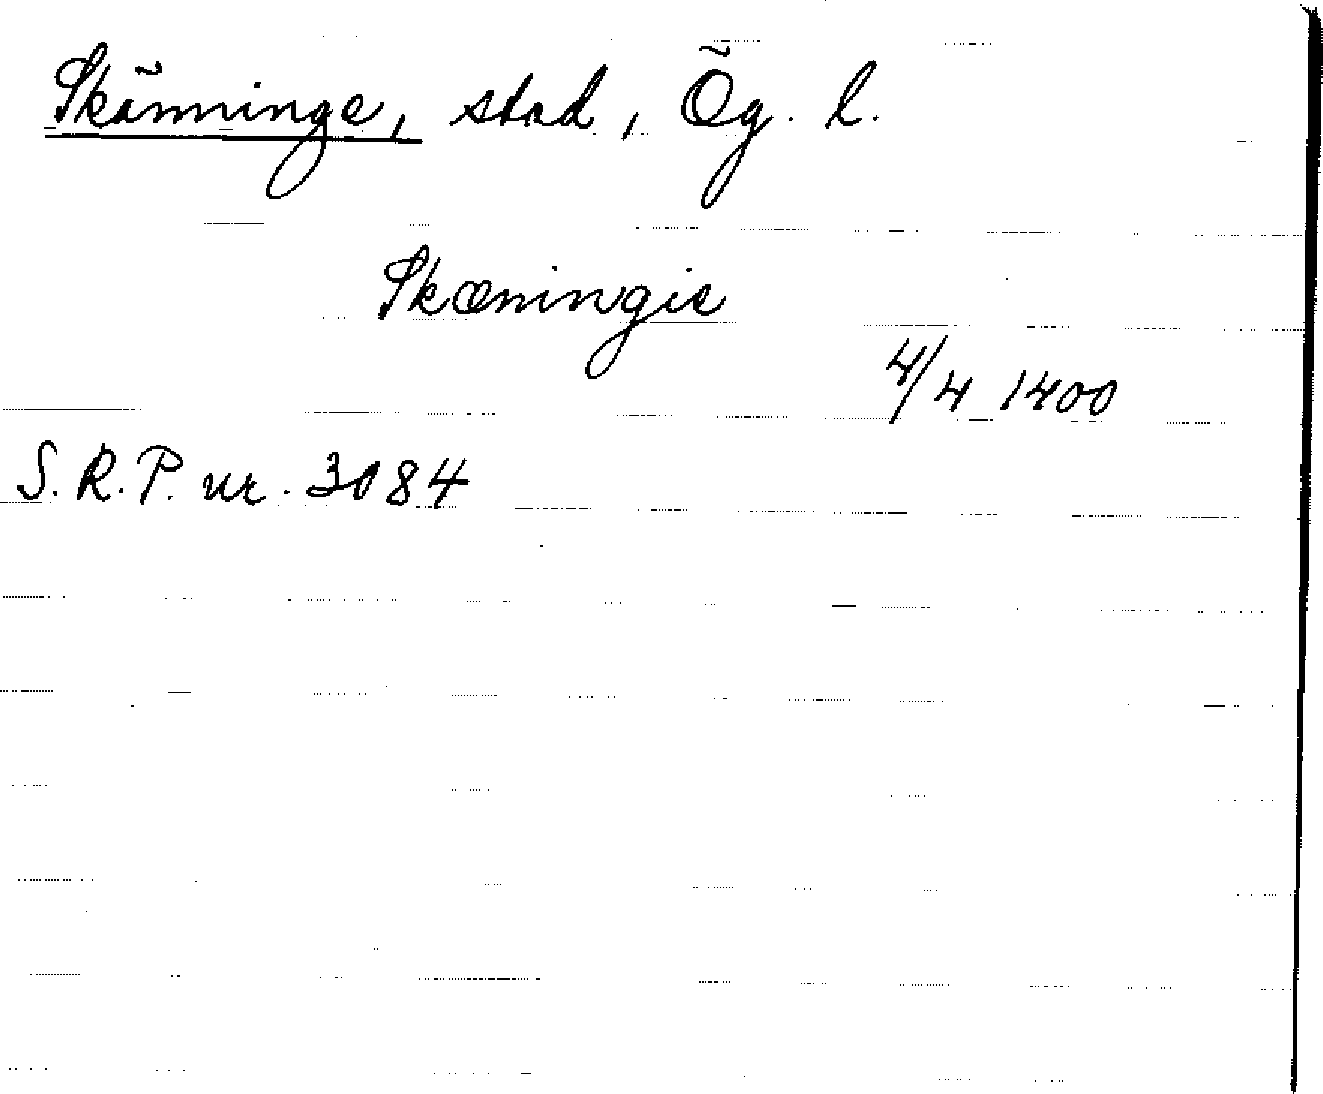 Skänninge, stad, Ög. l.
Skæningie
4/4 1400
S. R. P. nr. 3084